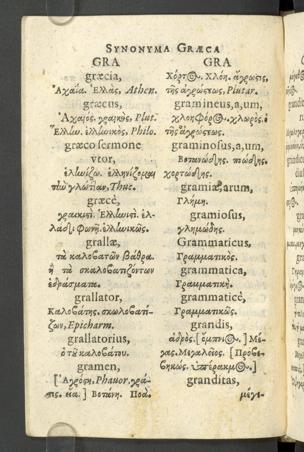 SYNONYMA GRÆCA
GRA
græcia,
Ἀχαΐα. Ἑλλὰς, Athen.
græcus,
Ἀχαιὸς. γραικὸς, Plut.
Ἕλλην. ἑλληνικὸς, Philo.
græco sermone
vtor,
ἑλληνίζω. ἑλληνίζομαι
τὴν γλῶτταν, Thuc.
græcè,
γραικιστὶ. Ἑλληνιστὶ. ἑλ-
φωνῇ. ἑλληνικῶς.
grallæ,
τὰ καλοβατῶν βάθρα.
ἢ τὰ σκαλοβατιζόντων
grallator,
Καλοβάτης.
Epicharm.
grallatorius,
ὁ τοῦ καλοβάτου.
gramen,
[Ἄγρωστις, Phauor.
Βοτάνη. Πόα.
GRA
Χόρτος. Χλόη. ἄγρωστις,
τῆς ἀγρώστεως, Plutar.
gramineus, a, um,
χλοηφόρος. χλωρὸς. ὁ
τῆς ἀγρώστεως.
graminosus, a, um,
Βοτανώδης. ποώδης.
χορτώδης.
gramiæ, arum,
Γλήμη.
gramiosus,
γλημώδης.
Grammaticus,
Γραμματικὸς.
grammatica,
Γραμματικὴ.
grammaticè,
Γραμματικῶς.
grandis,
ἁδρὸς. Μέ-
γας. Μεγαλεῖος. [Προβε-
βηκὼς.
granditas,
μέγε-